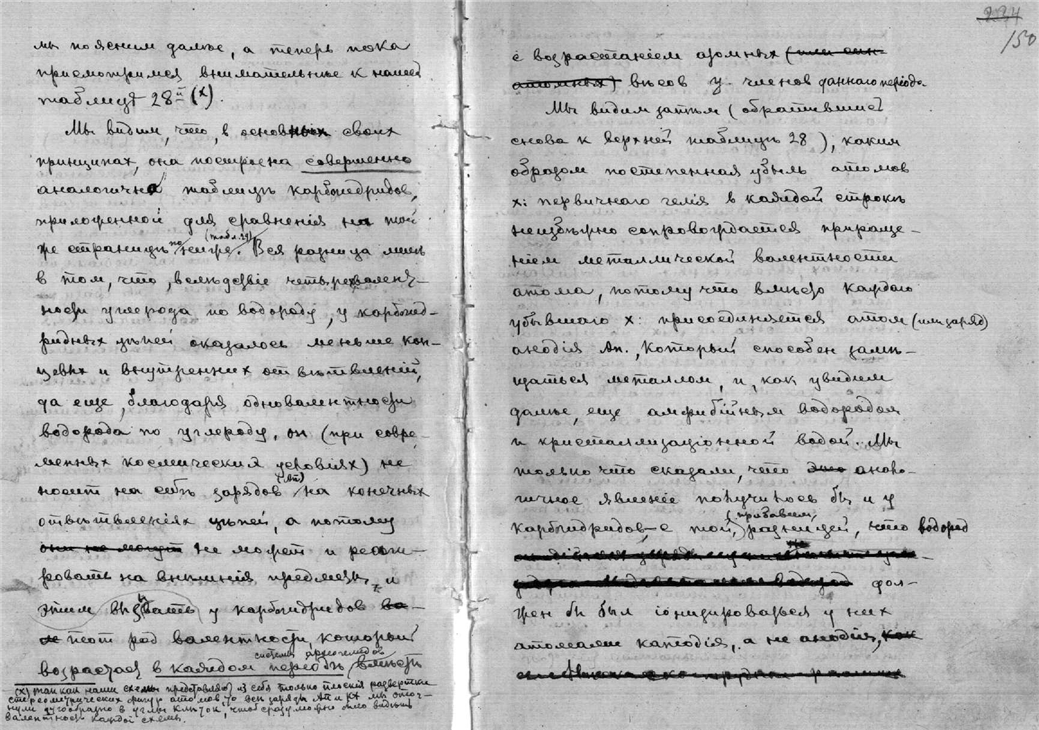 мы пояснимъ далѣе, а теперь пока
присмотримся внимательнѣе к нашей
таблицѣ 28й (х).
Мы видим, что, в основных своих
принципах, она построена совершенно
аналогично таблицѣ карбогидридов,
приложенной для сравненія на той
же страницѣ пониже (табл. 29). Вся разница лишь
в том, что, вслѣдствіе четырехвалент-
ности углерода по водороду, у карбогид-
ридных цѣпей оказалось меньше кон-
цевых и внутренних отвѣтвленій,
да еще, благодаря одновалентности
водорода по углероду, он (при совре-
менных космических условіях) не
носит на себѣ зарядов на конечных
отвѣтвленіях цѣпей, а потому
они не могут не может и реаги-
ровать на внѣшніе предметы, и
этим вызвать у карбогидридов
тот ряд валентности, который
возрастая в каждом періодѣ системы археогелидов вмѣстѣ
(х) так как наши схемы представляют из себя только плоскія развертки
стереометрических фигур атомов, то
валентности каждой схемы.
294
150
с возрастаніем атомных
вѣсов у членов данного періода.
Мы видим затѣм (обратившись
снова к верхней таблицѣ 28), каким
образом постепенная убыль атомов
х: первичного гелія в каждой строкѣ
неизбѣжно сопровождается прираще-
ніем металлической валентности
атома, потому что вмѣсто каждого
убывшаго х: присоединяется атом (или заряд)
анодія Ап., который способен замѣ-
щаться металлом, и, как увидим
далѣе, еще амфибійным водородом
и кристаллизаціонной водой. Мы
только что сказали, что это анало-
гичное явленіе получилось бы и у
карбогидридов, с той, (прибавим,) разницей, что водород
дол-
жен бы был іонизироваться у них
атомами катодія, а не анодія, как